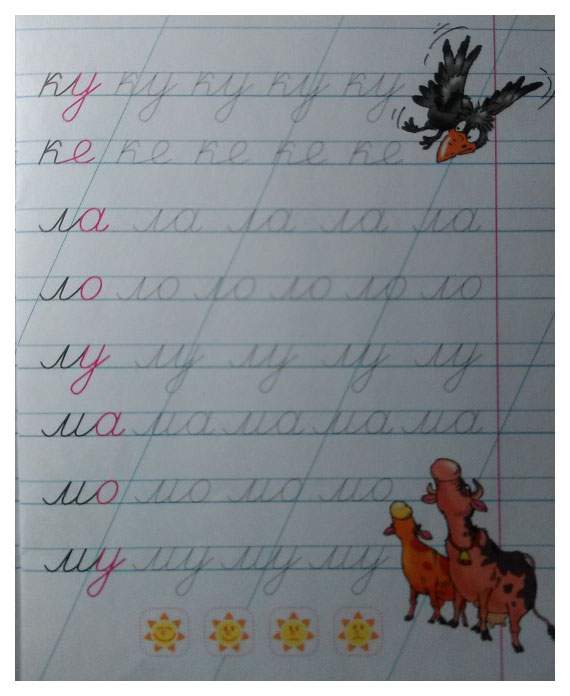 ку ку ку ку ку
ке ке ке ке ке
ла ла ла ла ла
ло ло ло ло ло ло
лу лу лу лу лу
ма ма ма ма ма
мо мо мо мо
му му му му